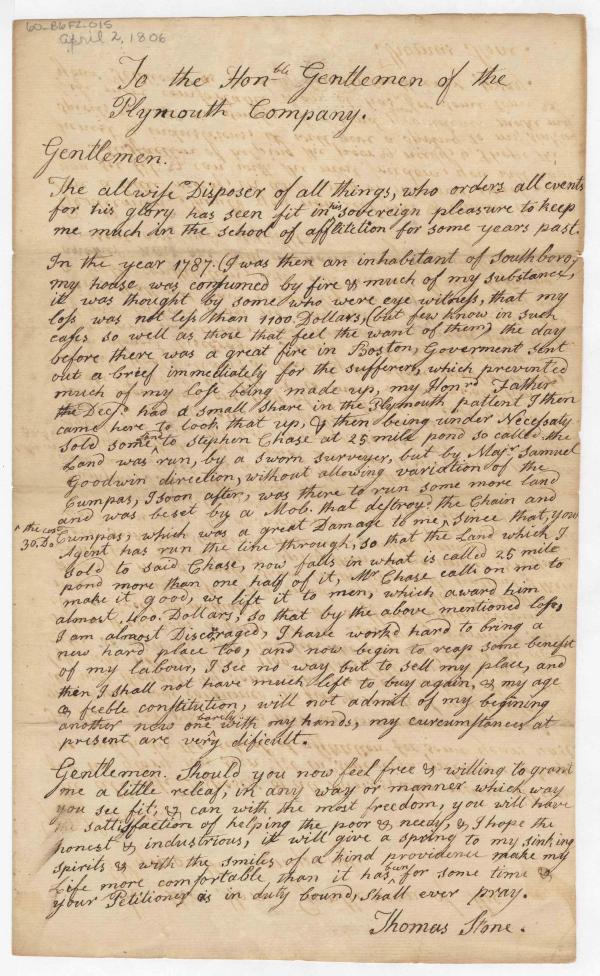 60-B6F2-015
April 2, 1806
To the Hon.ble Gentlemen of the
Plymouth Company.
Gentlemen.
The allwise Disposer of all things, who orders all events
for his glory has seen fit in his sovereign pleasure to keep
me much in the school of afflitition for some years past.
In the year 1787. (I was then an inhabitant of Southboro,
my house was consumed by fire & much of my substance,
it was thought by some who were eye witness, that my
loss was not less than 1100 Dollars, (but few know in such
cases so well as those that feel the want of them) the day
before there was a great fire in Boston, Goverment sent
out a brief immediately for the sufferers, which prevented
much of my lose being made up, my Hon.rd Father
the Decs.d had a small share in the Plymouth patient I then
came here to look that up, & then being under Necessaty
sold some land to Stephen Chase at 25 mile pond so called the
Land was run, by a sworn surveyer, but by Maj.r Samuel
Goodwin direction, without allowing variation of the
Cumpas, I soon after, was there to run some more land
and was beset by a Mob. that destroy.d the Chain and
^ the cost 30. Do
Cumpas, which was a great Damage to me ^ since that, your
Agent has run the line through, so that the Land which I
sold to said Chase, now falls in what is called 25 mile
pond more than one half of it, Mr Chase calls on me to
make it good, we lift it to men, which award him
almost 400. Dollars, so that by the above mentioned lose,
I am almost Discoraged, I have work'd hard to bring a
new hard place too, and now begin to reap some benefit
of my labour, I see no way but to sell my place, and
then I shall not have much left to buy again, & my age
& feeble constitution, will not admit of my begining
another new one barely with my hands, my curcumstances at
present are very dificult.
Gentlemen. Should you now feel free & willing to grant
me a little releaf, in any way or manner which way
you see fit, & can with the most freedom, you will have
the sattisfaction of helping the poor & needy, & I hope the
honest & industrious, it will give a spring to my sinking
spirits & with the smiles of a kind providence make my
Life more comfortable than it has bin for some time &
your Petitioner as in duty bound, Shall ever pray.
Thomas Stone.